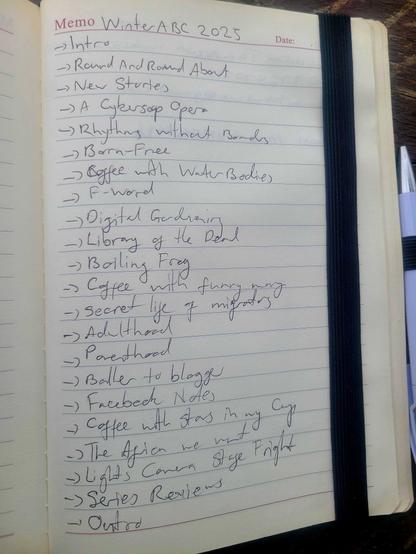 Memo WinterABC 2025 Date:
→ Intro
→ Round And Round About
→ New Stories
→ A Cybersoap Opera
→ Rhythms without Bounds
→ Born-Free
→ Coffee with Water Bodies
→ F-Word
→ Digital Gardening
→ Library of the Dead
→ Boiling Frog
→ Coffee with funny
→ Secret life of
→ Adulthood
→ Parenthood
→ Baller to blogger
→ Facebook Notes
→ Coffee with Stars in my Cup
→ The Africa we want
→ Lights Camera Stage Fright
→ Series Reviews
→ Outro